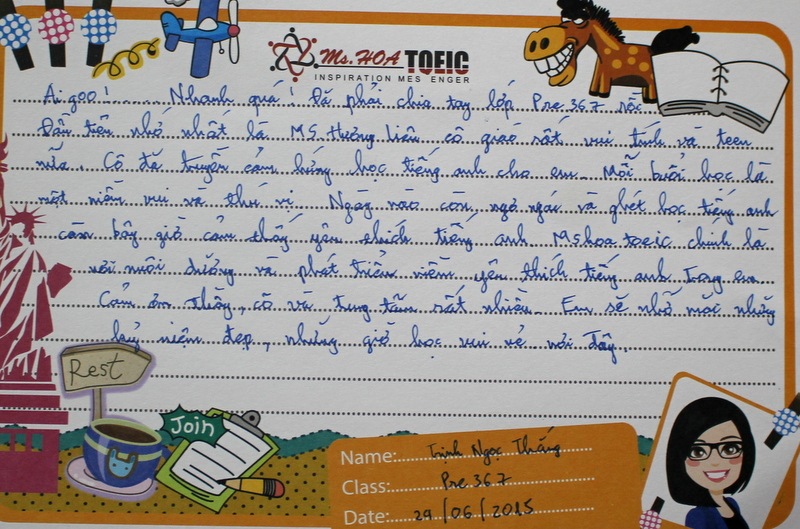 Ms. HOA TOEIC
INSPIRATION MES ENGER
Aigoo!...... Nhanh quá! Đã phải chia tay lớp Pre 367 rồi
Đầu tiên nhớ nhất là MS. Hương Liên cô giáo rất vui tính và teen
nữa. Cô đã truyền cảm hứng học tiếng anh cho em. Mỗi buổi học là
một niềm vui và thú vị. Ngày nào còn ngơ ngác và ghét học tiếng anh
còn bây giờ cảm thấy yêu thích tiếng anh Mshoa toeic chính là
nơi nuôi dưỡng và phát triển niềm yêu thích tiếng anh trong em
Cảm ơn thầy, cô và trung tâm rất nhiều. Em sẽ nhớ mãi những
kỷ niệm đẹp, những giờ học vui vẻ nơi đây.
Rest
Join
Name: Trịnh Ngọc Thắng
Class: Pre 367
Date: 29/06/2015